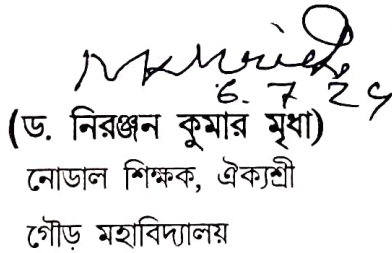 6.7.24
(ড. নিরঞ্জন কুমার মৃধা)
নোডাল শিক্ষক, ঐক্যশ্রী
গৌড় মহাবিদ্যালয়